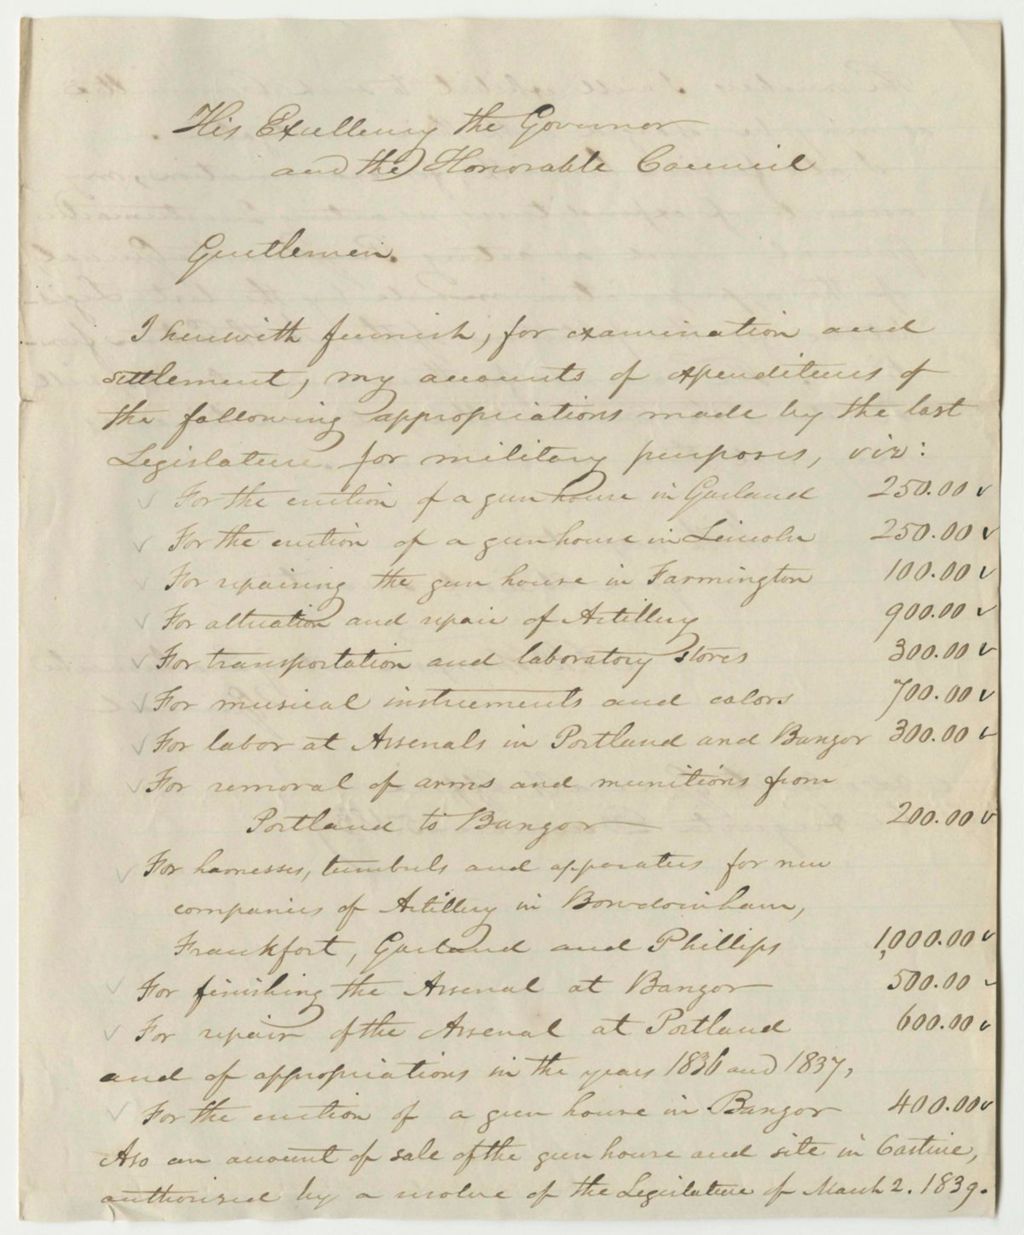 His Excellency the Governor
and the Honorable Council
Gentlemen.
I herewith furnish, for examination and
settlement, my accounts of expenditures of
the following appropriations made by the last
Legislature for military purposes, viz:
For the erection of a gun house in Garland 250.00
For the erection of a gun house in Lincoln 250.00
For repairing the gun house in Farmington 100.00
For alteration and repair of Artillery 900.00
For transportation and laboratory stores 300.00
For musical instruments and colors 700.00
For labor at Arsenals in Portland and Bangor 300.00
For removal of arms and munitions from
Portland to Bangor 200.00
For harnesses, tumbrils and apparatus for new
companies of Artillery in Bowdoinham,
Frankfort, Garland and Phillips 1,000.00
For finishing the Arsenal at Bangor 500.00
For repair of the Arsenal at Portland 600.00
and of appropriations in the years 1836 and 1837,
For the erection of a gun house in Bangor 400.00
Also an account of sale of the gun house and site in Castine,
authorized by a resolve of the Legislature of March 2. 1839.